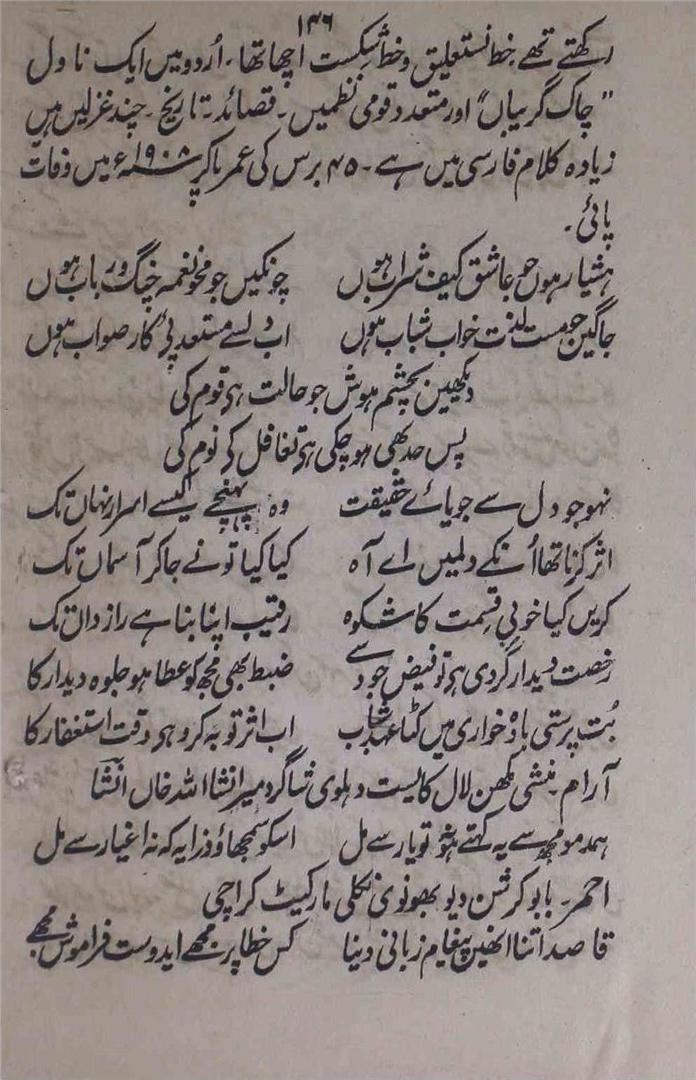 ۱۴۶
رکھتے تھے خط نستعلیق و خط شکست اچھا تھا۔ اُردو میں ایک ناول
"چاک گریباں" اور متعدد قومی نظمیں۔ قصائد۔ تاریخ۔ چند غزلیں ہیں
زیادہ کلام فارسی میں ہے۔ ۴۵ برس کی عمر پاکر ۱۹۰۸ء میں وفات
پائی۔
ہشیار ہوں جو عاشق کیف شراب ہوں چونکیں جو محو نغمہ چنگ و رباب ہوں
جاگیں جو مست لذت خواب شباب ہوں اب دل سے مستعد پئے کار صواب ہوں
دیکھیں بچشم ہوش جو حالت ہے قوم کی
بس حد بھی ہو چکی ہے تغافل کی نوم کی
نہو جو دل سے جویائے حقیقت وہ پہنچے کیسے اسرار نہاں تک
اثر کرنا تھا اُنکے دلمیں اے آہ کیا کیا تو نے جاکر آسماں تک
کریں کیا خوبیِ قسمت کا شکوہ رقیب اپنا بنا ہے رازداں تک
رخصت دیدار گر دی ہے تو فیض خود سے ضبط بھی مجھ کو عطا ہو جلوہ دیدار کا
بُت پرستی بادہ خواری میں کٹا عہد شباب اب اثر توبہ کرو ہے وقت استغفار کا
آرام۔ منشی مکھن لال کایست دہلوی شاگرد میر انشا اللہ خاں انشا
ہمدمو مجھ سے یہ کہتے ہو تو یار سے مل اسکو سمجھاؤ ذرا یہ کہ نہ اغیار سے مل
احمر۔ بابو کرشن دیو بھونوی نکلی مارکیٹ کراچی
قاصد اتنا انھیں پیغام زبانی دینا کس خطا پر مجھے ایدوست فراموش مجھے